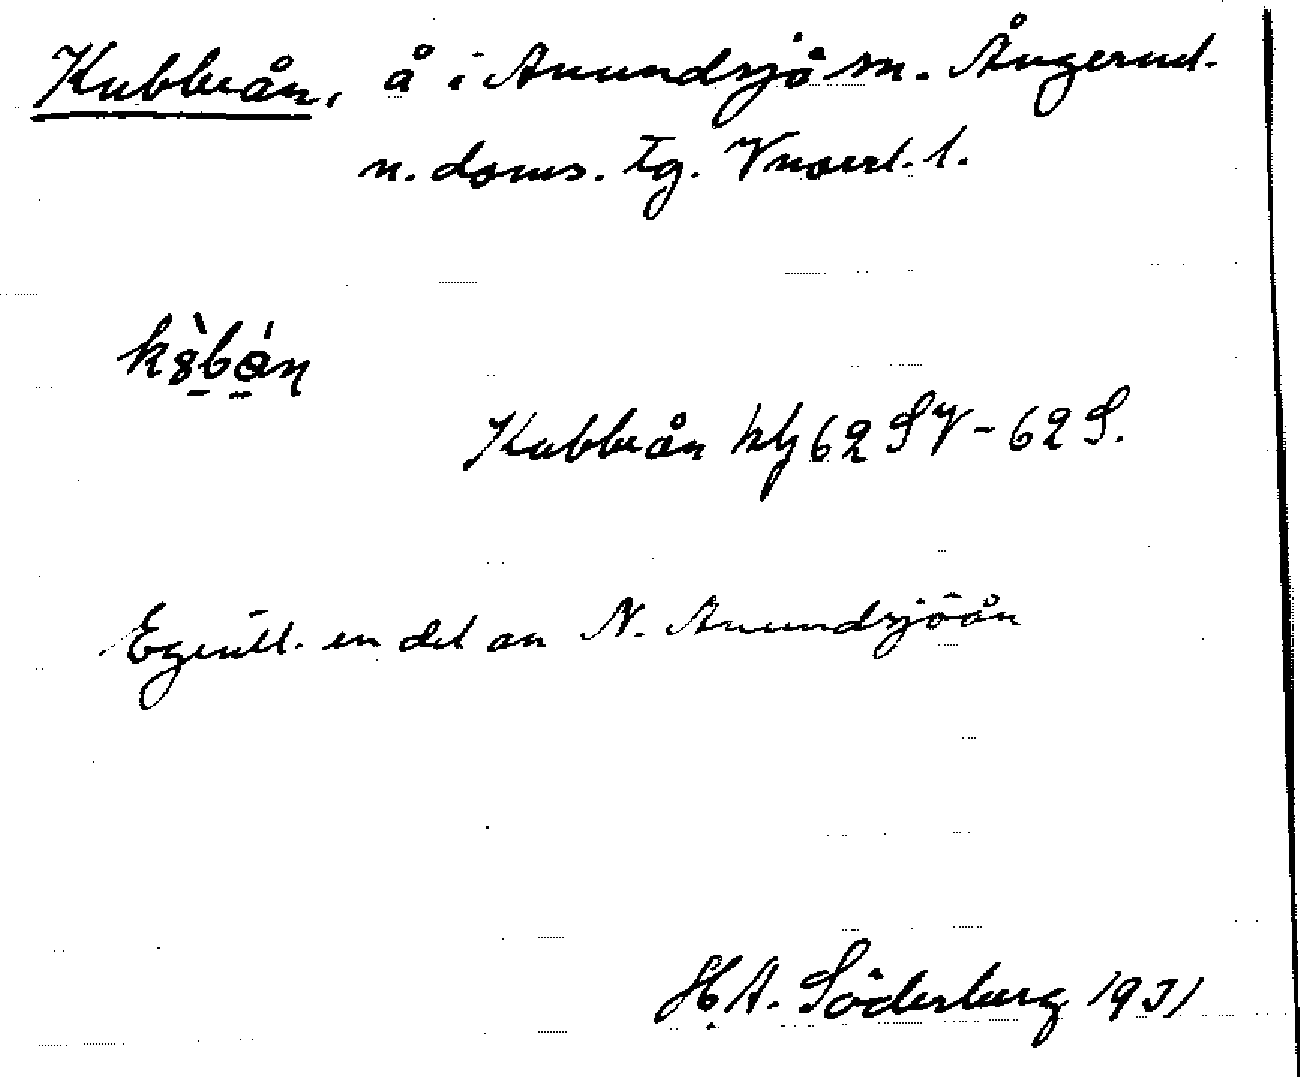 Kubbeån, å i Anundsjö sn. Ångerml.
n. doms. tg. Vnorrl. l.
Kubbeån hbl 62 SV - 62 S.
Egentl. en del av N. Anundsjöån
H.A. Söderberg 1931